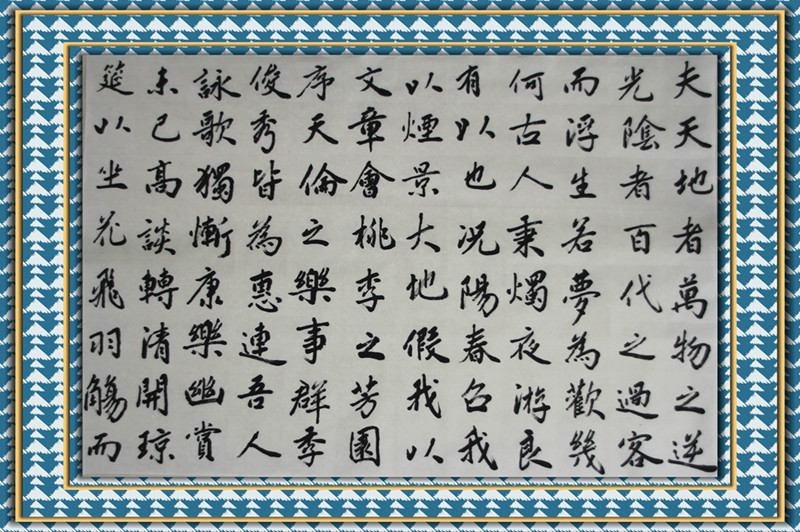 夫天地者萬物之逆
光陰者百代之過客
而浮生若夢為歡幾
何古人秉燭夜游良
有以也况陽春召我
以煙景大地假我以
文章會桃李之芳園
序天倫之樂事群季
俊秀皆為惠連吾人
詠歌獨慚康樂幽賞
未已高談轉清開琼
筵以坐花飛羽觴而